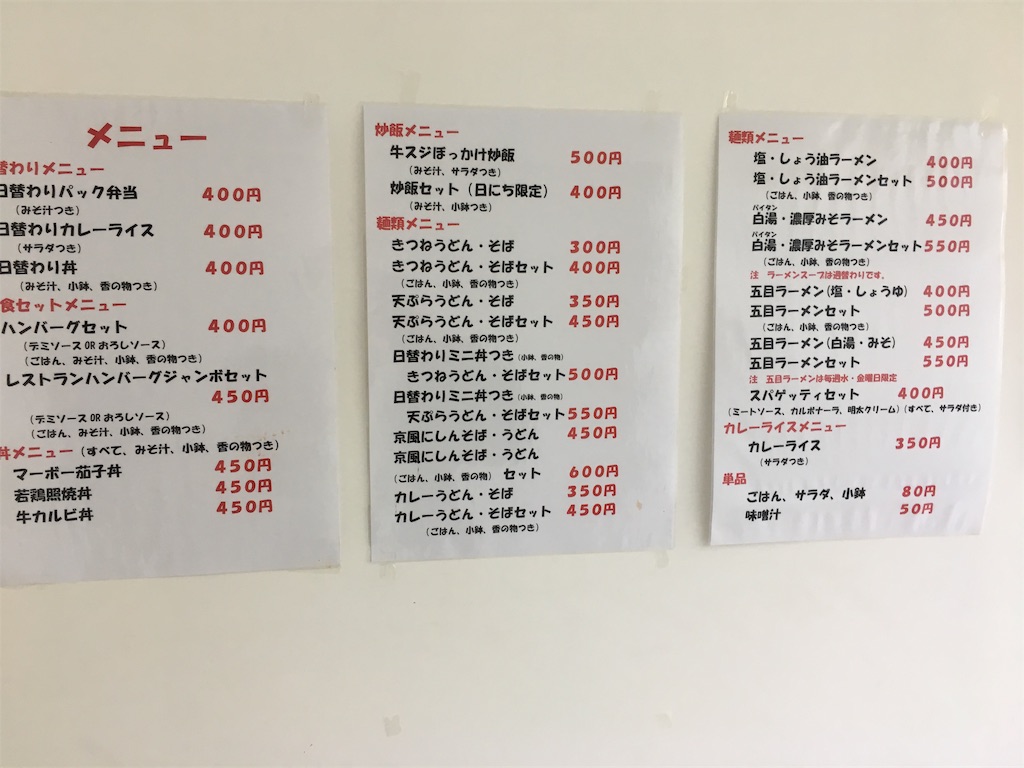 メニュー
替わりメニュー
日替わりパック弁当 400円
(みそ汁つき)
日替わりカレーライス 400円
(サラダつき)
日替わり丼 400円
(みそ汁、小鉢、香の物つき)
食セットメニュー
ハンバーグセット 400円
(デミソース OR おろしソース)
(ごはん、みそ汁、小鉢、香の物つき)
レストランハンバーグジャンボセット
450円
(デミソース OR おろしソース)
(ごはん、みそ汁、小鉢、香の物つき)
丼メニュー(すべて、みそ汁、小鉢、香の物つき)
マーボー茄子丼 450円
若鶏照焼丼 450円
牛カルビ丼 450円
炒飯メニュー
牛スジぼっかけ炒飯 500円
(みそ汁、サラダつき)
炒飯セット(日にち限定) 400円
(みそ汁、小鉢つき)
麺類メニュー
きつねうどん・そば 300円
きつねうどん・そばセット 400円
(ごはん、小鉢、香の物つき)
天ぷらうどん・そば 350円
天ぷらうどん・そばセット 450円
(ごはん、小鉢、香の物つき)
日替わりミニ丼つき(小鉢、香の物)
きつねうどん・そばセット500円
日替わりミニ丼つき(小鉢、香の物)
天ぷらうどん・そばセット550円
京風にしんそば・うどん 450円
京風にしんそば・うどん
(ごはん、小鉢、香の物) セット 600円
カレーうどん・そば 350円
カレーうどん・そばセット 450円
(ごはん、小鉢、香の物つき)
麺類メニュー
塩・しょう油ラーメン 400円
塩・しょう油ラーメンセット 500円
(ごはん、小鉢、香の物つき)
パイタン
白湯・濃厚みそラーメン 450円
パイタン
白湯・濃厚みそラーメンセット550円
(ごはん、小鉢、香の物つき)
注 ラーメンスープは週替わりです。
五目ラーメン(塩・しょうゆ) 400円
五目ラーメンセット 500円
(ごはん、小鉢、香の物つき)
五目ラーメン(白湯・みそ) 450円
五目ラーメンセット 550円
注 五目ラーメンは毎週水・金曜日限定
スパゲッティセット 400円
(ミートソース、カルボナーラ、明太クリーム)(すべて、サラダ付き)
カレーライスメニュー
カレーライス 350円
(サラダつき)
単品
ごはん、サラダ、小鉢 80円
味噌汁 50円